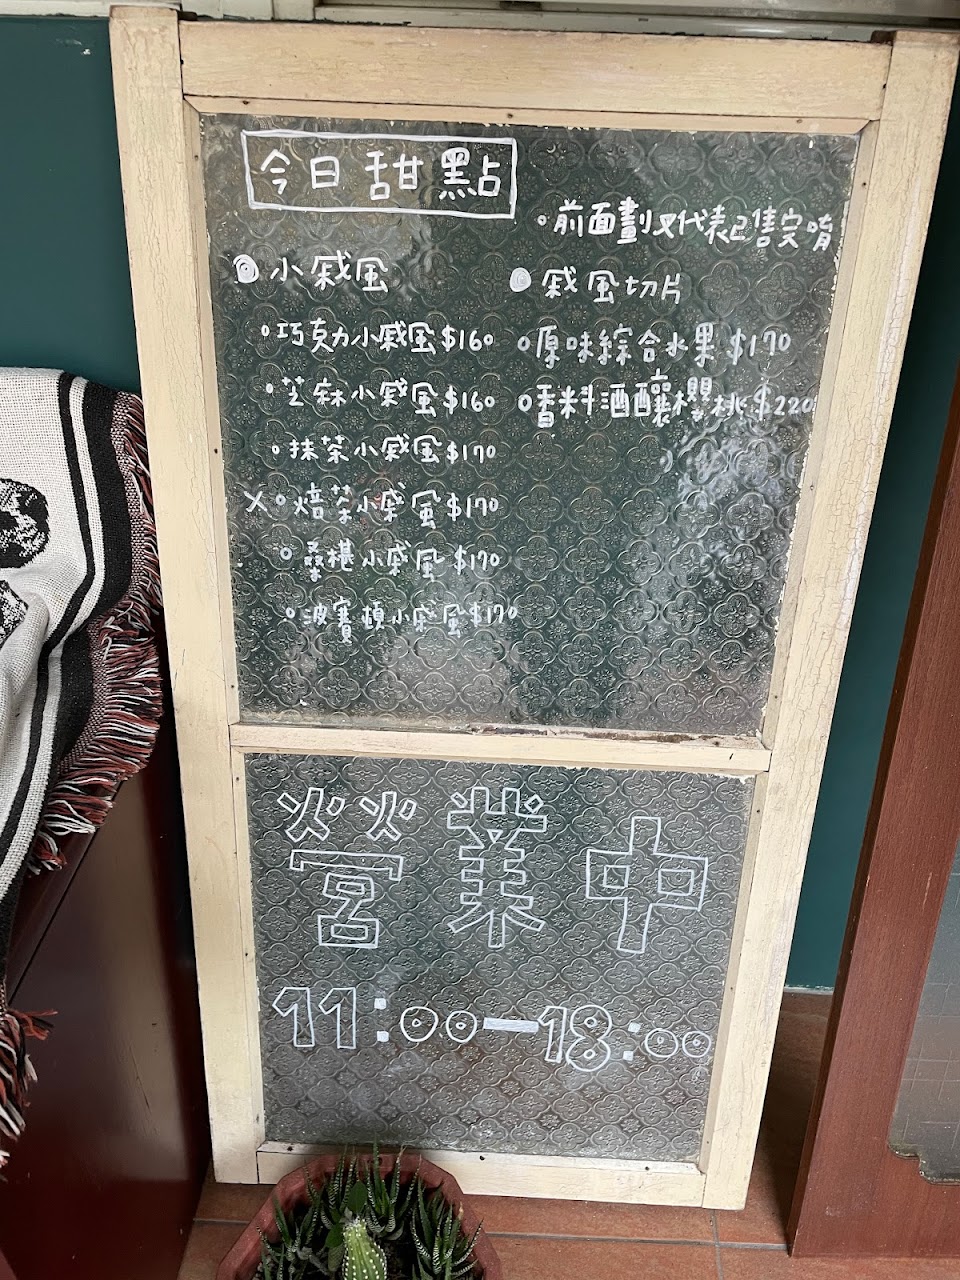 今日甜點
。前面劃X代表已售完唷
小戚風
。巧克力小戚風$160
。芝麻小戚風$160
。抹茶小戚風$170
X。焙茶小戚風$170
。桑椹小戚風$170
。波賽頓小戚風$170
戚風切片
。原味綜合水果$170
。香料酒釀櫻桃$220
營業中
11:00—18:00